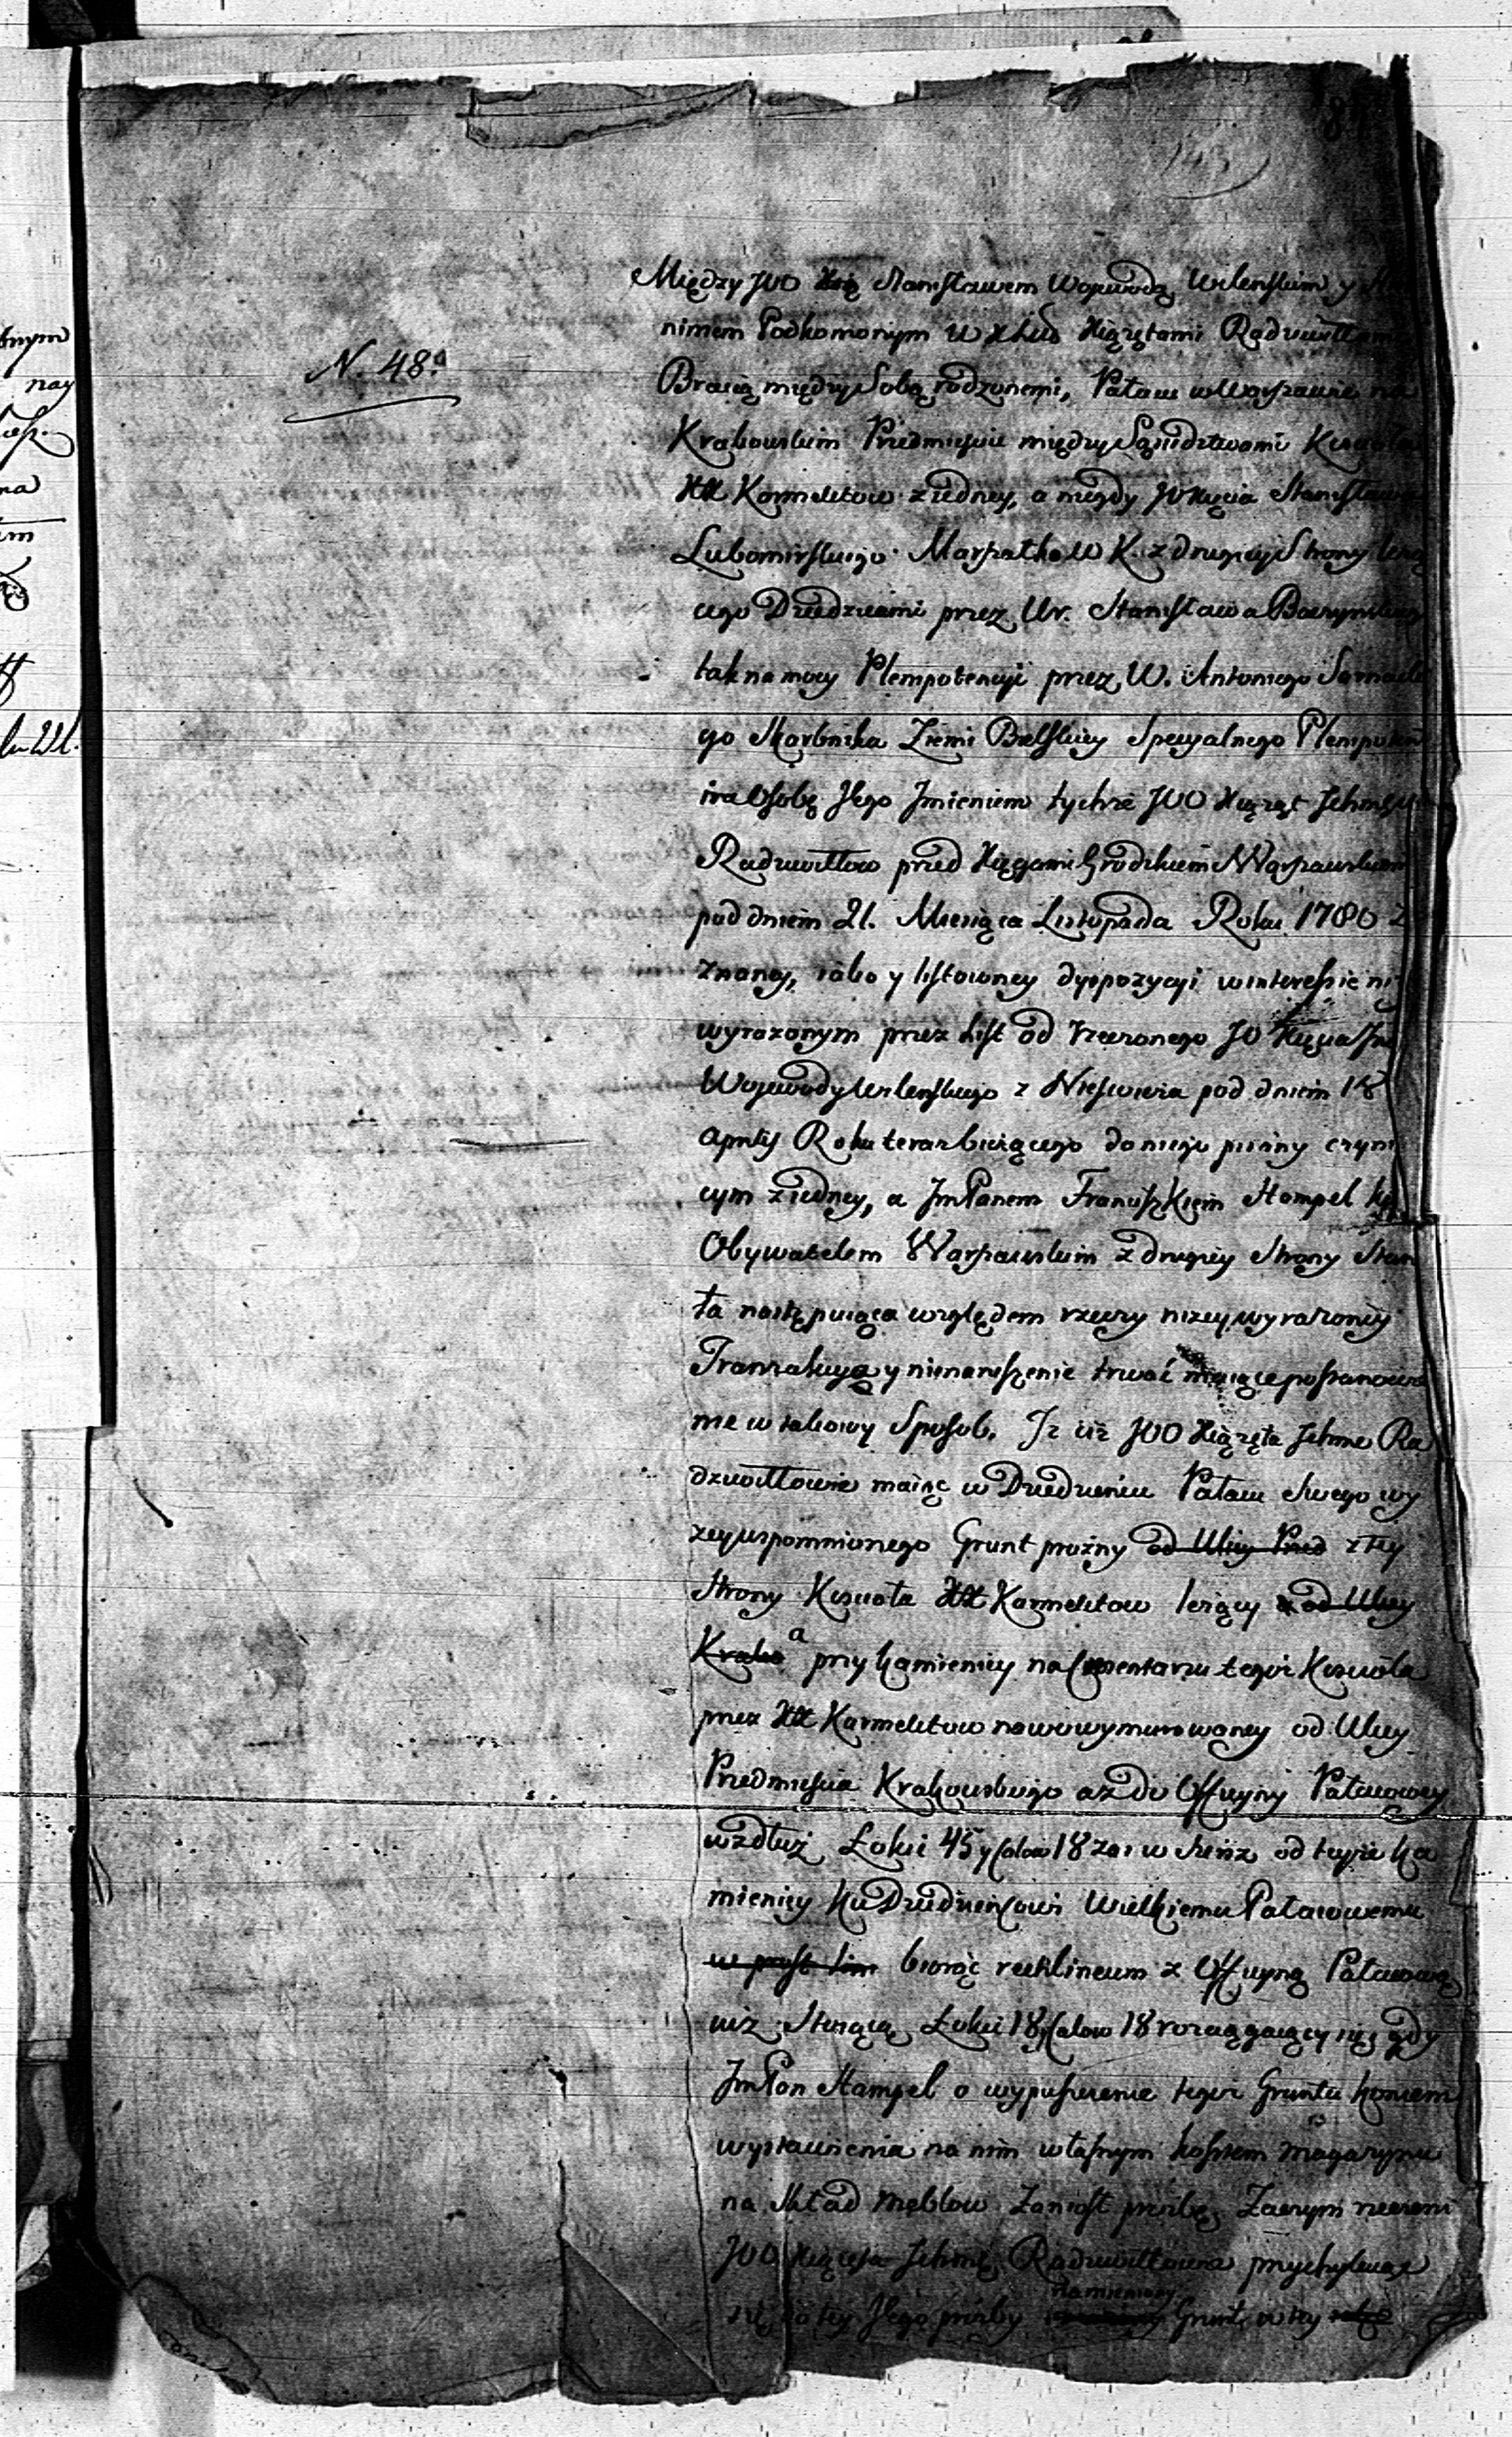 143
N. 48.
Między JOO Xią Stanisławem Woiewodą Wileńskim y
nimem Podkomorzym W X Lità Xiążętami Radziwiłłam
Bracią między Sobą rodzonemi, Pałacu w Warszawie na
Krakowskim Przedmieściu między Sąsiedztwami Kościoła
XX Karmelitow z iedney, a niegdy JO Xięcia Stanisława
Lubomirskiego Marszałka W K. z drugiey Strony leżą
cego Dziedzicami przez Ur. Stanisława
tak na mocy Plenipotencyi przez W. Antoniego
go Skarbnika Ziemi Bielskiey Specyalnego Plenipoten
ira Osobę Jego Jmieniem tychże JOO Xiążąt Jchmciow
Radziwiłłow przed Xięgami Grodzkiemi Warszawskiemi
pod dniem 21. Miesiąca Listopada Roku 1780 Ze
znaney, iako y listowney dyspozycyi w interessie ni
wyrażonym przez List od rzeczonego JO Xięcia Jmci
Woiewody Wileńskiego z Nieswieża pod dniem 18
Aprilis Roku teraz bieżącego do niego pisany czynią
cym z iedney, a JmPanem Franciszkiem Hampel
Obywatelem Warszawskim z drugiey Strony Stan
ła następuiąca względem rzeczy niżey wyrażoney
Tranzakcya y nienaruszenie trwać maiące postanowie
nie w takowy Sposob. Jż iż JOO Xiążęta Jchmć Ra
dziwiłłowie maiąc w Dziedzińcu Pałacu Swego wy
żey wspomnionego Grunt prożny od Ulicy Przed z tey
Strony Kościoła XX Karmelitow leżący a od Ulicy
Krako a przy kamienicy na Cmentarzu tegoż Kościoła
przez XX Karmelitow nowo wymurowaney od Ulicy
Przedmieścia Krakowskiego aż do Officyny Pałacowey
wzdłuż Łokci 45 y Calow 18 zaś w Szerz od teyże ka
mienicy ku Dziedzińcowi Wielkiemu Pałacowemu
w prost lini biorąc rectilineum z Officyną Pałacową
iuż Stoiącą Łokci 18 y Calow 18 rozciągaiący się gdy
JmPan Hampel o wypuszczenie tegoż Gruntu koncem
wystawienia na nim własnym kosztem Magazynu
na Skład Meblow Zaniosł prozbę Zaczym rzeczeni
JOO Xiążęta Jchmć Radziwiłłowie przychylaiąc
się do tey Jego prozby namieniony Grunt w tey